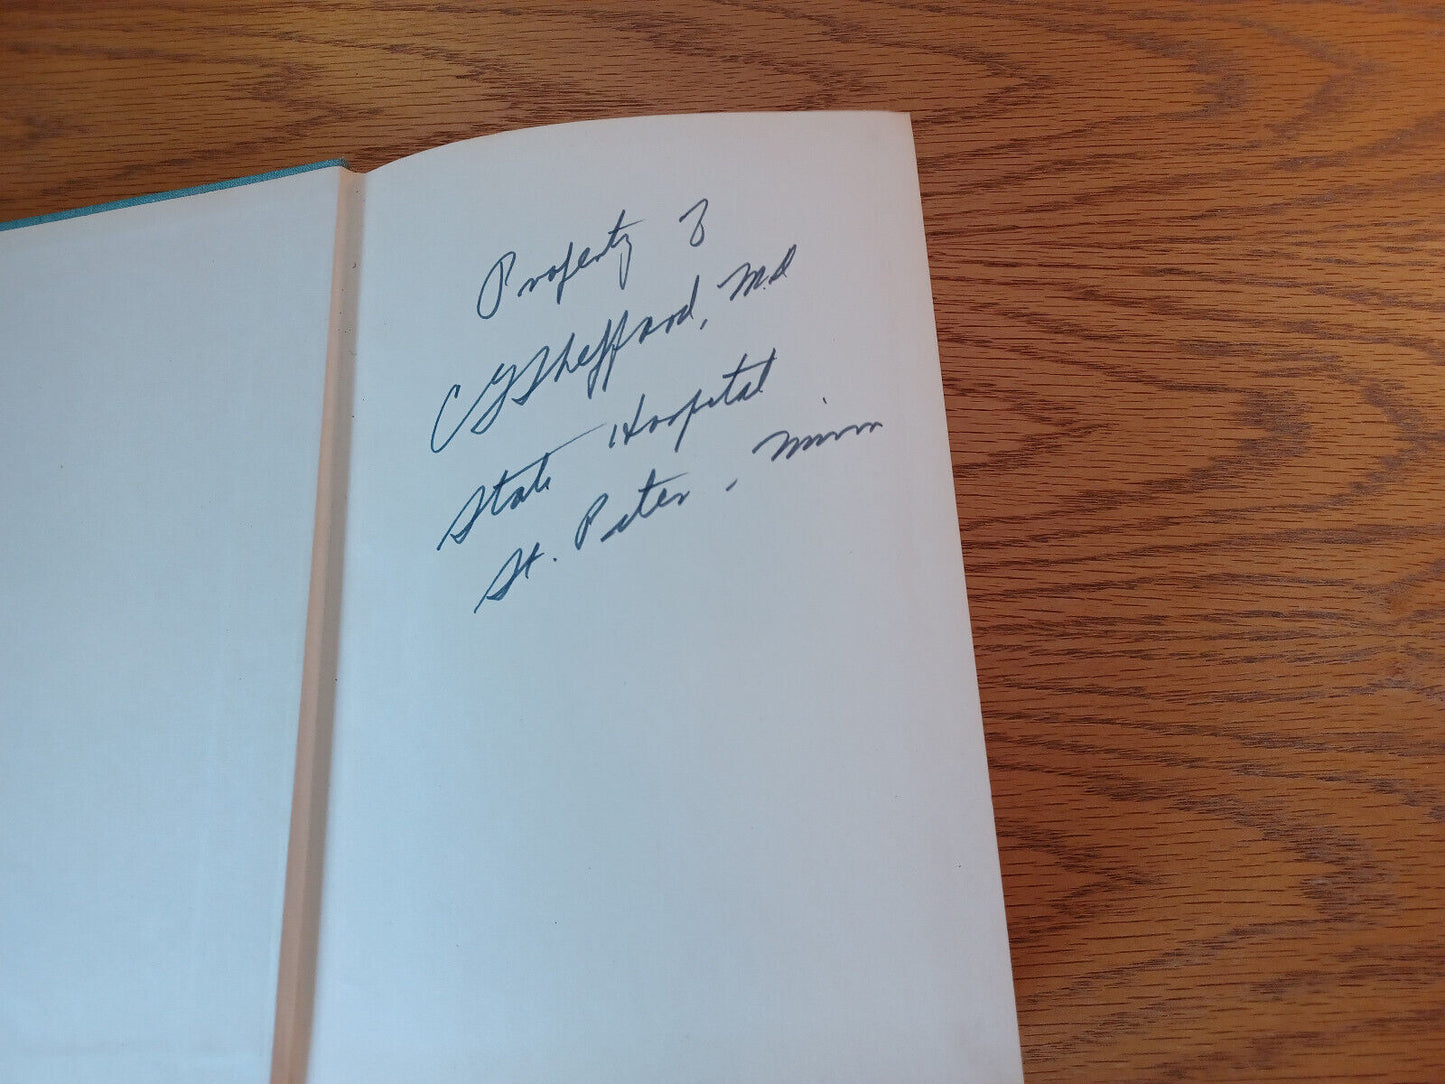 Property of
C G Sheppard, M.D
State Hospital
St. Peter, Minn